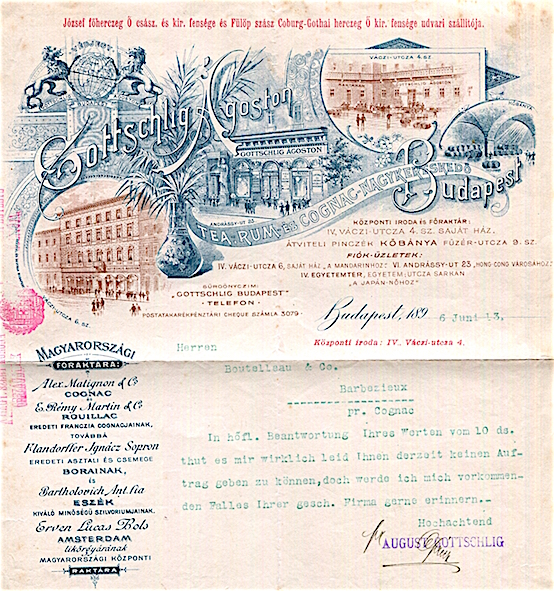 József főherczeg Ő csász. és kir. fensége és Fülöp szász Coburg-Gothai herczeg Ő kir. fensége udvari szállítója.
Gottschlig Ágoston
VÁCZI-UTCZA 4. SZ.
KŐBÁNYA
GOTTSCHLIG ÁGOSTON
ANDRÁSSY-UT 23
TEA, RUM- ÉS COGNAC-NAGYKERESKEDŐ
Budapest
KÖZPONTI IRODA ÉS FŐRAKTÁR:
IV. VÁCZI-UTCZA 4. SZ. SAJÁT HÁZ.
ÁTVITELI PINCZÉK KŐBÁNYA FÜZÉR-UTCZA 9. SZ.
FIÓK-ÜZLETEK:
IV. VÁCZI-UTCZA 6, SAJÁT HÁZ, „A MANDARINHOZ“ VI. ANDRÁSSY-UT 23 „HONG-CONG VÁROSÁHOZ“
IV. EGYETEMTÉR, EGYETEM-UTCZA SARKÁN
„A JAPÁN-NŐHÖZ“
VÁCZI-UTCZA 6. SZ.
SÜRGÖNYCZIM:
„GOTTSCHLIG BUDAPEST“
• TELEFON •
POSTATAKARÉKPÉNZTÁRI CHEQUE SZÁMLA 3079
Budapest, 189 6 Juni 13.
Központi iroda: IV., Váczi-utcza 4.
MAGYARORSZÁGI
FŐRAKTÁRA:
Alex. Matignon & Co
COGNAC
ÉS
E. Rémy Martin & Co
ROUILLAC
EREDETI FRANCZIA COGNACJAINAK,
TOVÁBBÁ
Flandorffer Ignácz Sopron
EREDETI ASZTALI ÉS CSEMEGE
BORAINAK,
ÉS
Bartholovich Ant. fia
ESZÉK
KIVÁLÓ MINŐSÉGÜ SZILVORIUMJAINAK.
Erven Lucas Bols
AMSTERDAM
likőrgyárának
MAGYARORSZÁGI KÖZPONTI
RAKTÁRA
Herren
Boutelleau & Co.
Barbezieux
pr. Cognac
In höfl. Beantwortung Ihres Werten vom 10 ds.
thut es mir wirklich leid Ihnen derzeit keinen Auf-
trag geben zu können, doch werde ich mich vorkommen-
den Falles Ihrer gesch. Firma gerne erinnern.-
Hochachtend
AUGUST GOTTSCHLIG